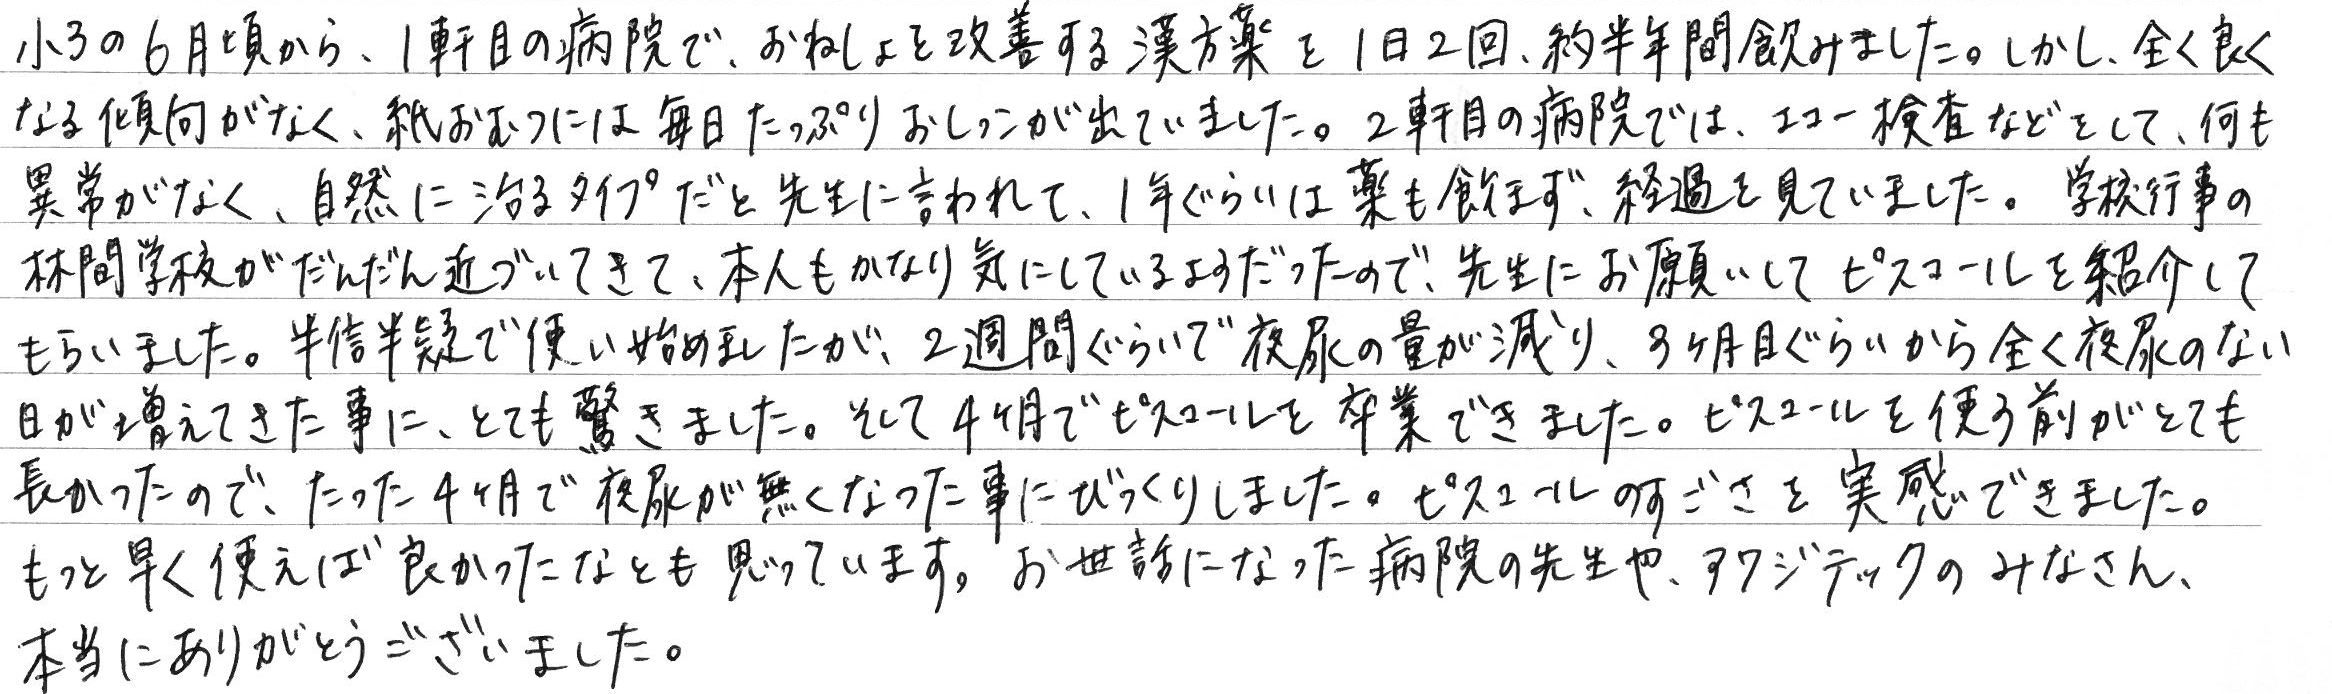 小3の6月頃から、1軒目の病院で、おねしょを改善する漢方薬を1日2回、約半年間飲みました。しかし、全く良く
なる傾向がなく、紙おむつには毎日たっぷりおしっこが出ていました。2軒目の病院では、エコー検査などをして、何も
異常がなく、自然に治るタイプだと先生に言われて、1年ぐらいは薬も飲まず、経過を見ていました。学校行事の
林間学校がだんだん近づいてきて、本人もかなり気にしているようだったので、先生にお願いしてピスコールを紹介して
もらいました。半信半疑で使い始めましたが、2週間ぐらいで夜尿の量が減り、3ヶ月目ぐらいから全く夜尿のない
日が増えてきた事に、とても驚きました。そして4ヶ月でピスコールを卒業できました。ピスコールを使う前がとても
長かったので、たった4ヶ月で夜尿が無くなった事にびっくりしました。ピスコールのすごさを実感できました。
もっと早く使えば良かったなとも思っています。お世話になった病院の先生や、アワジテックのみなさん、
本当にありがとうございました。